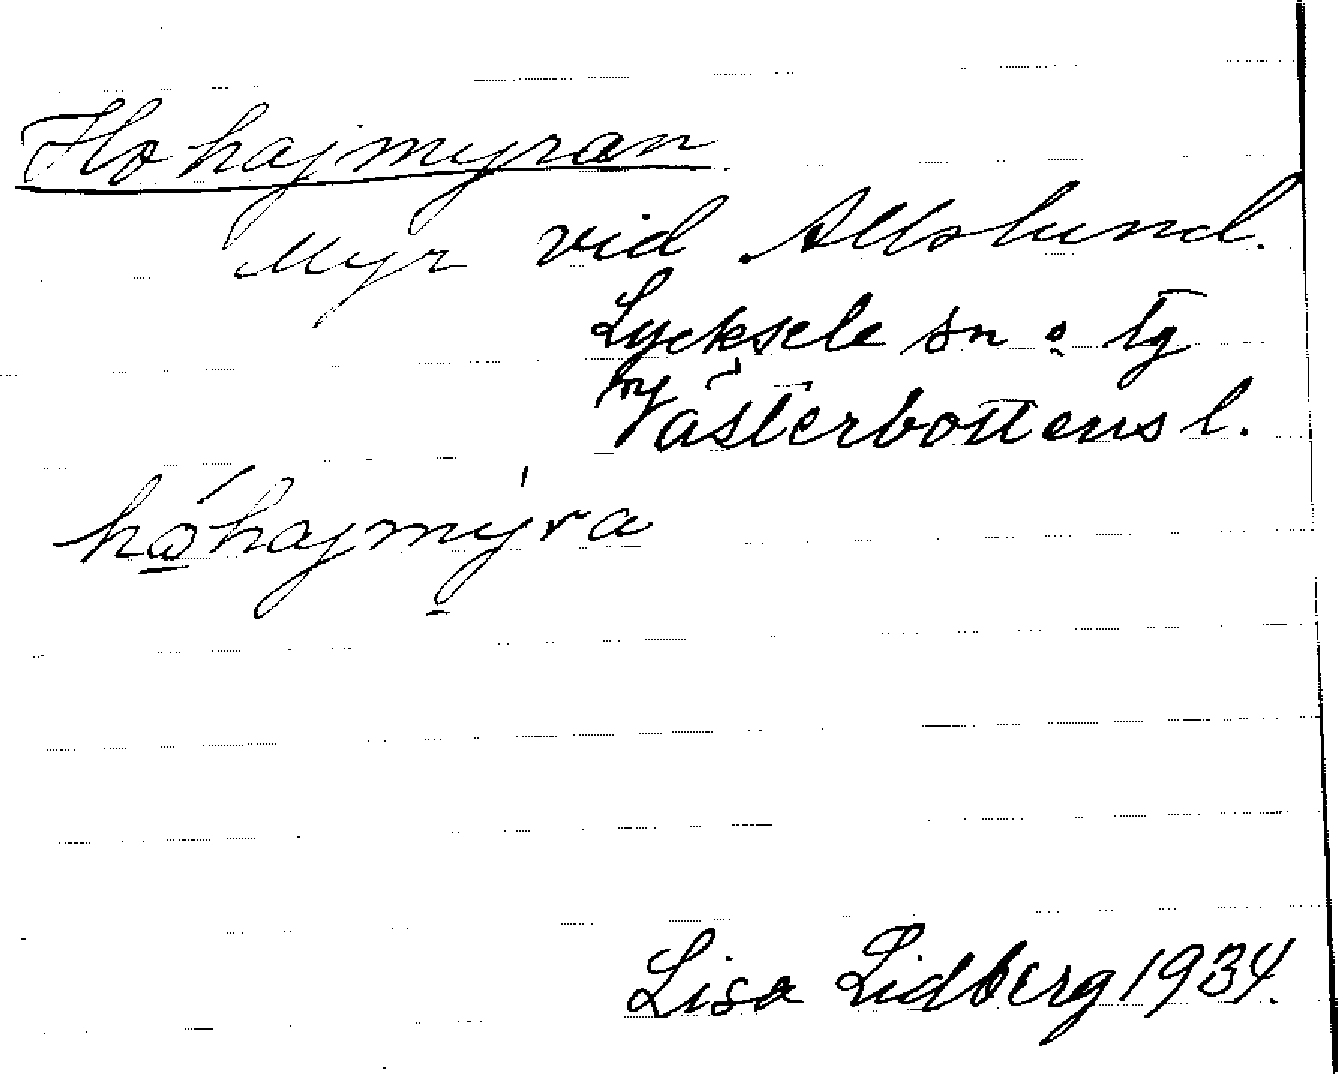 Hohajmyran
Myr vid Allslund.
Lycksele sn o. tg
Västerbottens l.
hohajmyra
Lisa Lidberg 1934.